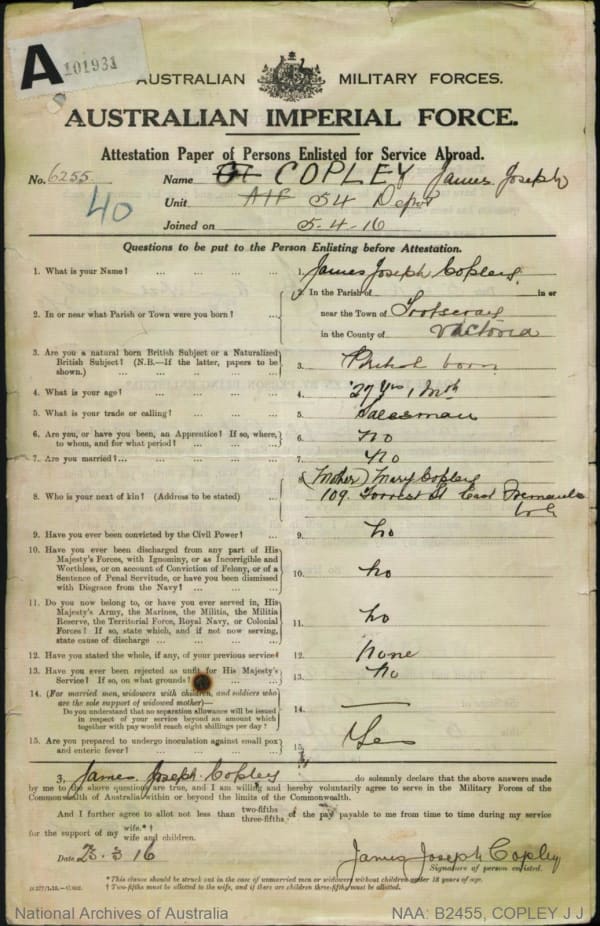 A 101931
AUSTRALIAN MILITARY FORCES.
AUSTRALIAN IMPERIAL FORCE.
Attestation Paper of Persons Enlisted for Service Abroad.
No. 6255 Name COPLEY James Joseph
40
Unit AIF 54 Depot
Joined on 5-4-16
Questions to be put to the Person Enlisting before Attestation.
1. What is your Name? ... ... ... ... 1. James Joseph Copley.
2. In or near what Parish or Town were you born? ... 2. In the Parish of in or
near the Town of Footscray
in the County of Victoria
3. Are you a natural born British Subject or a Naturalized
British Subject? (N.B.—If the latter, papers to be
shown.) ... ... ... ... 3. British born
4. What is your age? ... ... ... ... 4. 27 Yrs 1 Mth
5. What is your trade or calling? ... ... ... 5. Salesman
6. Are you, or have you been, an Apprentice? If so, where,
to whom, and for what period? ... ... ... 6. No
7. Are you married? ... ... ... ... 7. No
8. Who is your next of kin? (Address to be stated) ... 8. (Mother) Mary Copley
109. Forrest St East Fremantle
W A
9. Have you ever been convicted by the Civil Power? ... 9. No
10. Have you ever been discharged from any part of His
Majesty's Forces, with Ignominy, or as Incorrigible and
Worthless, or on account of Conviction of Felony, or of a
Sentence of Penal Servitude, or have you been dismissed
with Disgrace from the Navy? ... ... ... 10. No
11. Do you now belong to, or have you ever served in, His
Majesty's Army, the Marines, the Militia, the Militia
Reserve, the Territorial Force, Royal Navy, or Colonial
Forces? If so, state which, and if not now serving,
state cause of discharge ... ... ... 11. No
12. Have you stated the whole, if any, of your previous service? 12. None
13. Have you ever been rejected as unfit for His Majesty's
Service? If so, on what grounds? ... ... 13. No
14. (For married men, widowers with children, and soldiers who
are the sole support of widowed mother)—
Do you understand that no separation allowance will be issued
in respect of your service beyond an amount which
together with pay would reach eight shillings per day? 14. —
15. Are you prepared to undergo inoculation against small pox
and enteric fever? ... ... ... ... 15. Yes
I, James Joseph Copley do solemnly declare that the above answers made
by me to the above questions are true, and I am willing and hereby voluntarily agree to serve in the Military Forces of the
Commonwealth of Australia within or beyond the limits of the Commonwealth.
And I further agree to allot not less than two-fifths three-fifths of the pay payable to me from time to time during my service
for the support of my wife.*† wife and children.
Date 23.3.16 James Joseph Copley
Signature of person enlisted.
* This clause should be struck out in the case of unmarried men or widowers without children under 18 years of age.
† Two-fifths must be allotted to the wife, and if there are children three-fifths must be allotted.
National Archives of Australia NAA: B2455, COPLEY J J